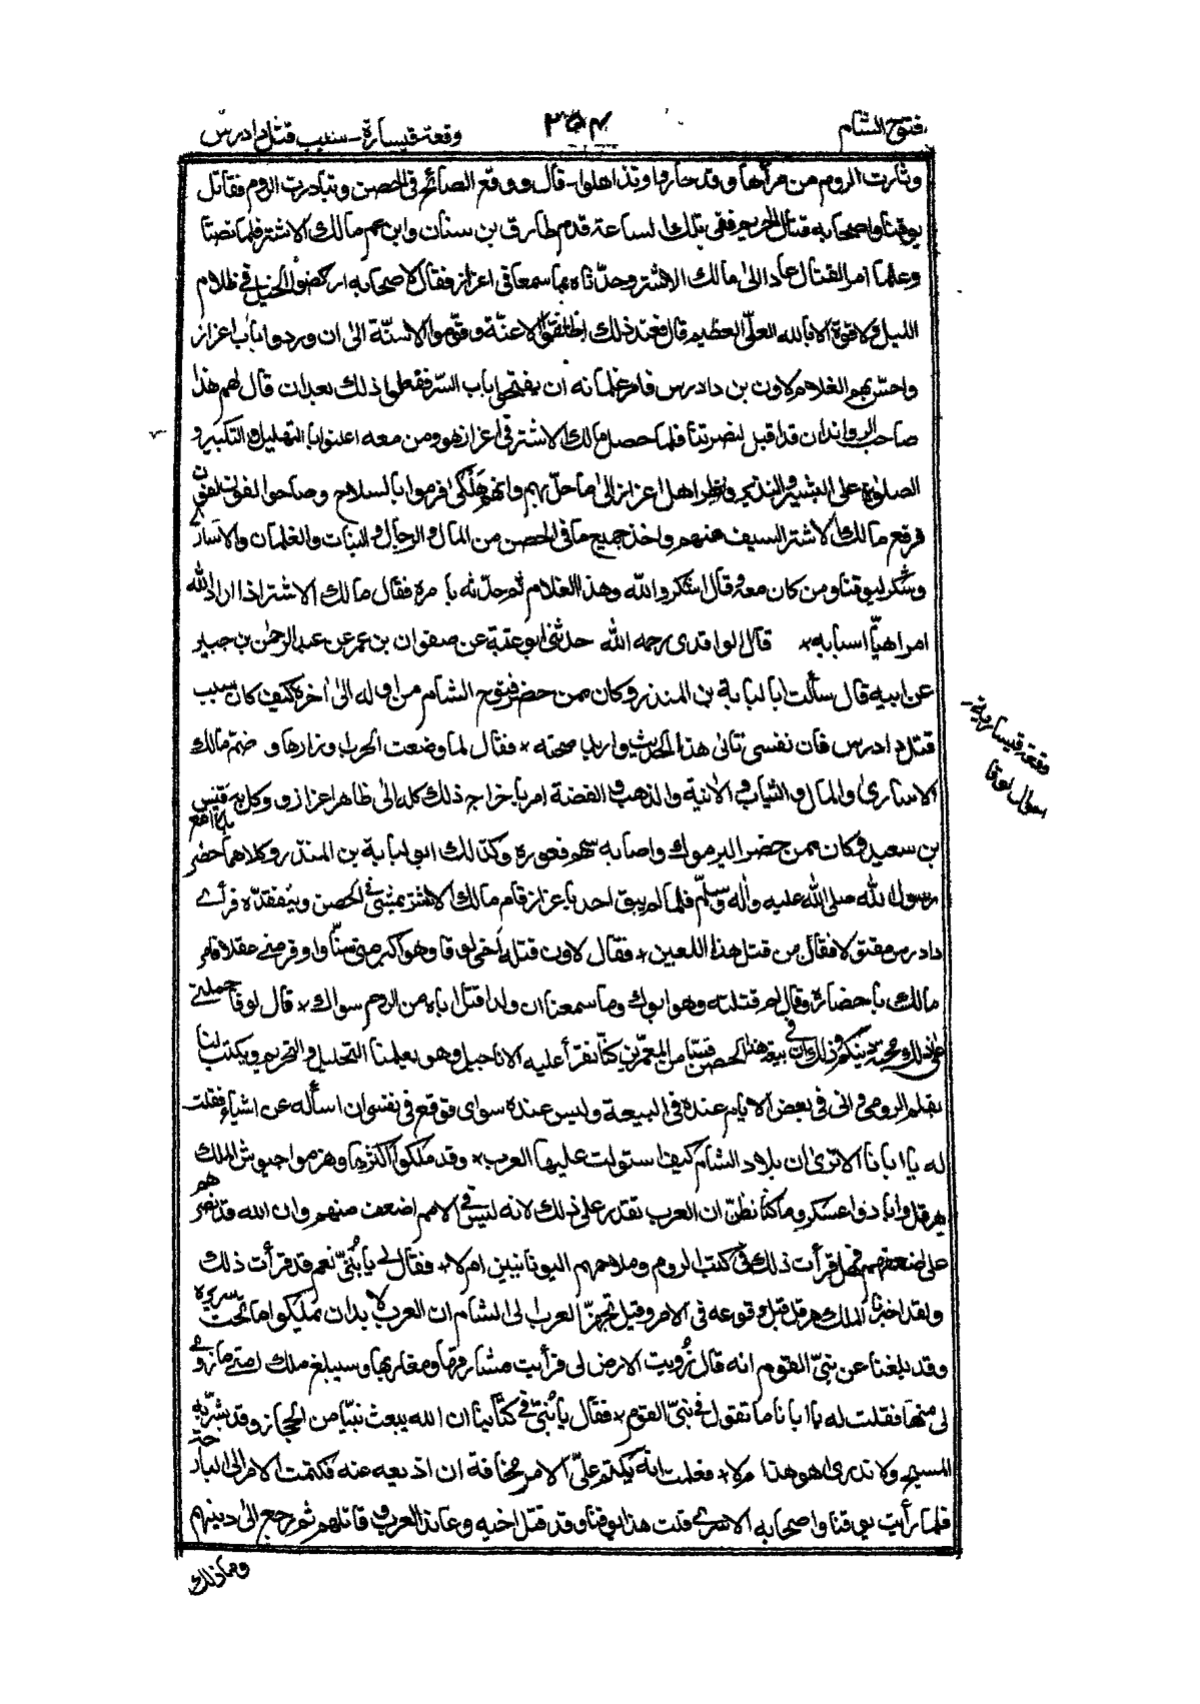 فتوح الشام
٣٥٧
وقعة قيسارية - سبب قتل دادرس
وثارت الروم من مرأها وقد حاروا وتذاهلوا - قال ووقع الصائح في الحصن وتبادرت الروم فقاتل
يوقنا واصحابه قتال الحريم ففي تلك الساعة قدم طارق بن سنان وابن عم مالك الاشتر فلما نصتا
وعلما امر القتال عادا الى مالك الاشتر وحدثاه بما سمعا في اعزاز فقال لاصحابه اركضوا الخيل في ظلام
الليل ولا قوة الا بالله العلي العظيم قال فعند ذلك اطلقوا الاعنّة وقوّموا الاسنّة الى ان وردوا باب اعزاز
واحسّ بهم الغلام لاون بن دادرس فامر غلمانه ان يفتحوا باب السّر ففعلوا ذلك بعد ان قال لهم هذا
صاحب الراوندان قد اقبل لنصرتنا فلما حصل مالك الاشتر في اعزاز هو ومن معه اعلنوا بالتهليل والتكبير و
الصلوة على البشير والنذير ونظر اهل اعزاز الى ما حلّ بهم وانهم هَلْكى فرموا بالسلاح وصاحوا لفون لفون
فرفع مالك الاشتر السيف عنهم واخذ جميع ما في الحصن من المال والرجال والبنات والغلمان والاسارٰى
وشكر ليوقنا ومن كان معه وقال اشكروا الله وهذا الغلام ثم حدّثه بامره فقال مالك الاشتر اذا اراد الله
امرا هيّأ اسبابه * قال الواقدي رحمه الله حدثنى ابو عتبة عن صفوان بن عمر عن عبد الرحمٰن بن جبير
عن ابيه قال سألت ابا لبابة بن المنذر وكان ممن حضر فتوح الشام من اوله الى اٰخره كيف كان سبب
قتل دادرس فان نفسي تاٰبى هذا الحديث واريد صحته * فقال لما وضعت الحرب اوزارها و ضمّ مالك
الاسارى والمال والثياب والاٰنية والذهب والفضة امر باخراج ذلك كله الى ظاهر اعزاز ووكل به قيس
بن سعيد وكان ممن حضر اليرموك واصابه سهم فعوره وكذلك ابو لبابة بن المنذر وكلاهما حضر
رسول الله صلى الله عليه واٰله وسلّم فلما لم يبق احد باعزاز قام مالك الاشتر يمشي في الحصن ويتفقده فرأى
دادرس مقتولا فقال من قتل هذا اللعين * فقال لاون قتله اخي لوقا وهو اكبر مني سنّا واوفر مني عقلا فامر
مالك باحضاره وقال لم قتلته وهو ابوك وما سمعنا ان ولدا قتل اباه من الروم سواك * قال لوقا حملني
على ذلك محبة دينكم وذلك ان في بيعة هذا الحصن قسّا من المعمرين كنّا نقرأ عليه الاناجيل وهو يعلمنا التحليل والتحريم ويكتب لنا
بقلم الرومي واني في بعض الايام عنده في البيعة وليس عنده سواى فوقع في نفسي ان اسأله عن اشياء فقلت
له يا ابانا الا ترى ان بلاد الشام كيف استولت عليها العرب * وقد ملكوا اكثرها وهزموا جيوش الملك
هرقل وابادوا عسكره وما كنا نظنّ ان العرب تقدر على ذلك لانه ليس في الامم اضعف منهم وان الله قد نصرهم
على ضعفهم فهل قرأت ذلك في كتب الروم وملاحم اليونانيين ام لا * فقال لي يا بُنيّ نعم قد قرأت ذلك
ولقد اخبرنا الملك هرقل قبل وقوعه في الامر وقبل تجهيز العرب الى الشام ان العرب لا بد ان تملكوا ما تحت سريره
وقد بلغنا عن نبيّ القوم انه قال زُويت الارض لي فرأيت مشارقها ومغاربها وسيبلغ ملك امتي ما زوي
لى منها فقلت له يا ابانا ما تقول في نبيّ القوم * فقال يا بُنيّ في كتابنا ان الله يبعث نبيّا من الحجاز وقد بشّر به
المسيح ولا ندرى اهو هذا ام لا * فعلمت انه يكتم عليّ الامر مخافة ان اذيعه عنه فكتمت الامر الى البارحة
فلما رأيت يوقنا واصحابه الاسرى قلت هذا يوقنا وقد قتل اخيه وعاند العرب وقاتلهم ثم رجع الى دينهم
وما ذلك
وقعة قيسارية
سوال لوقا